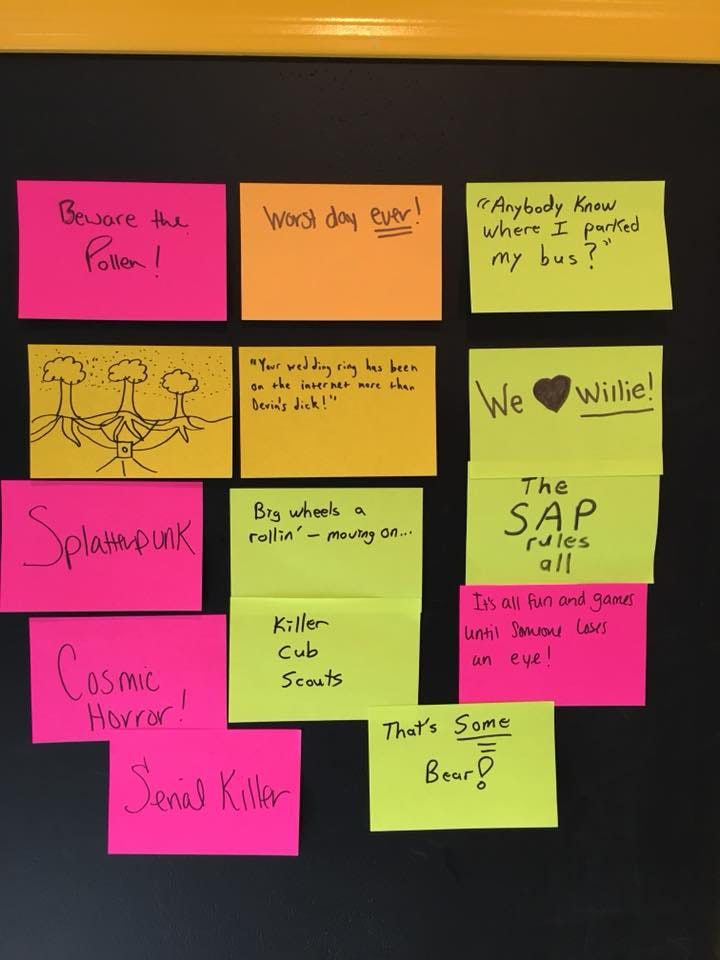 Beware the
Pollen!
Worst day ever!
"Anybody Know
where I parked
my bus?"
"Your wedding ring has been
on the internet more than
Devin's dick!"
We ♥ Willie!
Splatterpunk
Big wheels a
rollin' – moving on...
The
SAP
rules
all
Killer
Cub
Scouts
It's all fun and games
until Someone loses
an eye!
Cosmic
Horror!
That's Some
Bear!
Serial Killer